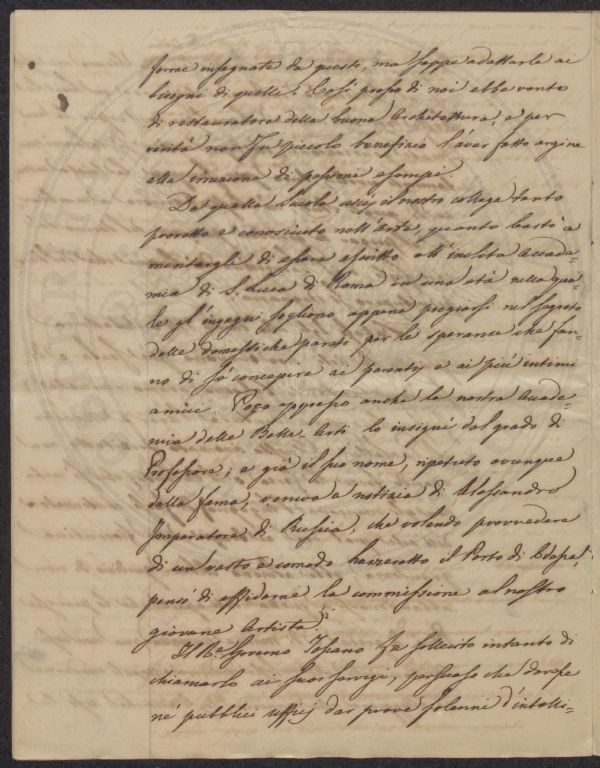 forme insegnate da questi, ma seppe adattarle ai
bisogni di quelli. Così presso di noi ebbe vanto
di restauratore della buona Architettura, e per
verità non fu piccolo benefizio l'aver fatto argine
alla irruzione di pessimi esempi.
Da quella Scuola uscì il nostro collega tanto
provetto e conosciuto nell'arte, quanto bastò a
meritargli di essere ascritto all'inclita Accade-
mia di S. Luca di Roma in una età nella qua-
le gl'ingegni sogliono appena pregiarsi nel segreto
delle domestiche pareti per le speranze che fan-
no di sé concepire ai parenti, e ai più intimi
amici. Poco appresso anche la nostra Accade-
mia delle Belle-Arti lo insignì del grado di
Professore; e già il suo nome, ripetuto ovunque
dalla fama, veniva a notizia di Alessandro
Imperatore di Russia, che volendo provvedere
di un vasto e comodo Lazzeretto il Porto di Odessa,
pensò di affidarne la commissione al nostro
giovane Artista.
Il R. Governo Toscano fu sollecito intanto di
chiamarlo ai suoi servigj, persuaso che dovesse
né pubblici uffizj dar prove solenni d'intelli-